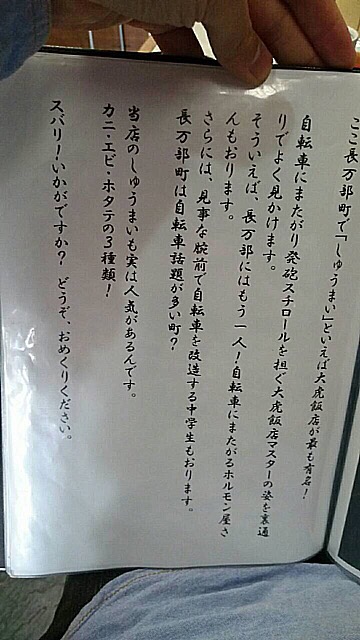 ここ長万部町で「しゅうまい」といえば大虎飯店が最も有名！
自転車にまたがり発砲スチロールを担ぐ大虎飯店マスターの姿を裏通
りでよく見かけます。
そういえば、長万部にはもう一人！自転車にまたがるホルモン屋さ
んもおります。
さらには、見事な腕前で自転車を改造する中学生もおります。
長万部町は自転車話題が多い町？
当店のしゅうまいも実は人気があるんです。
カニ・エビ・ホタテの3種類！
ズバリ！いかがですか？　どうぞ、おめくりください。